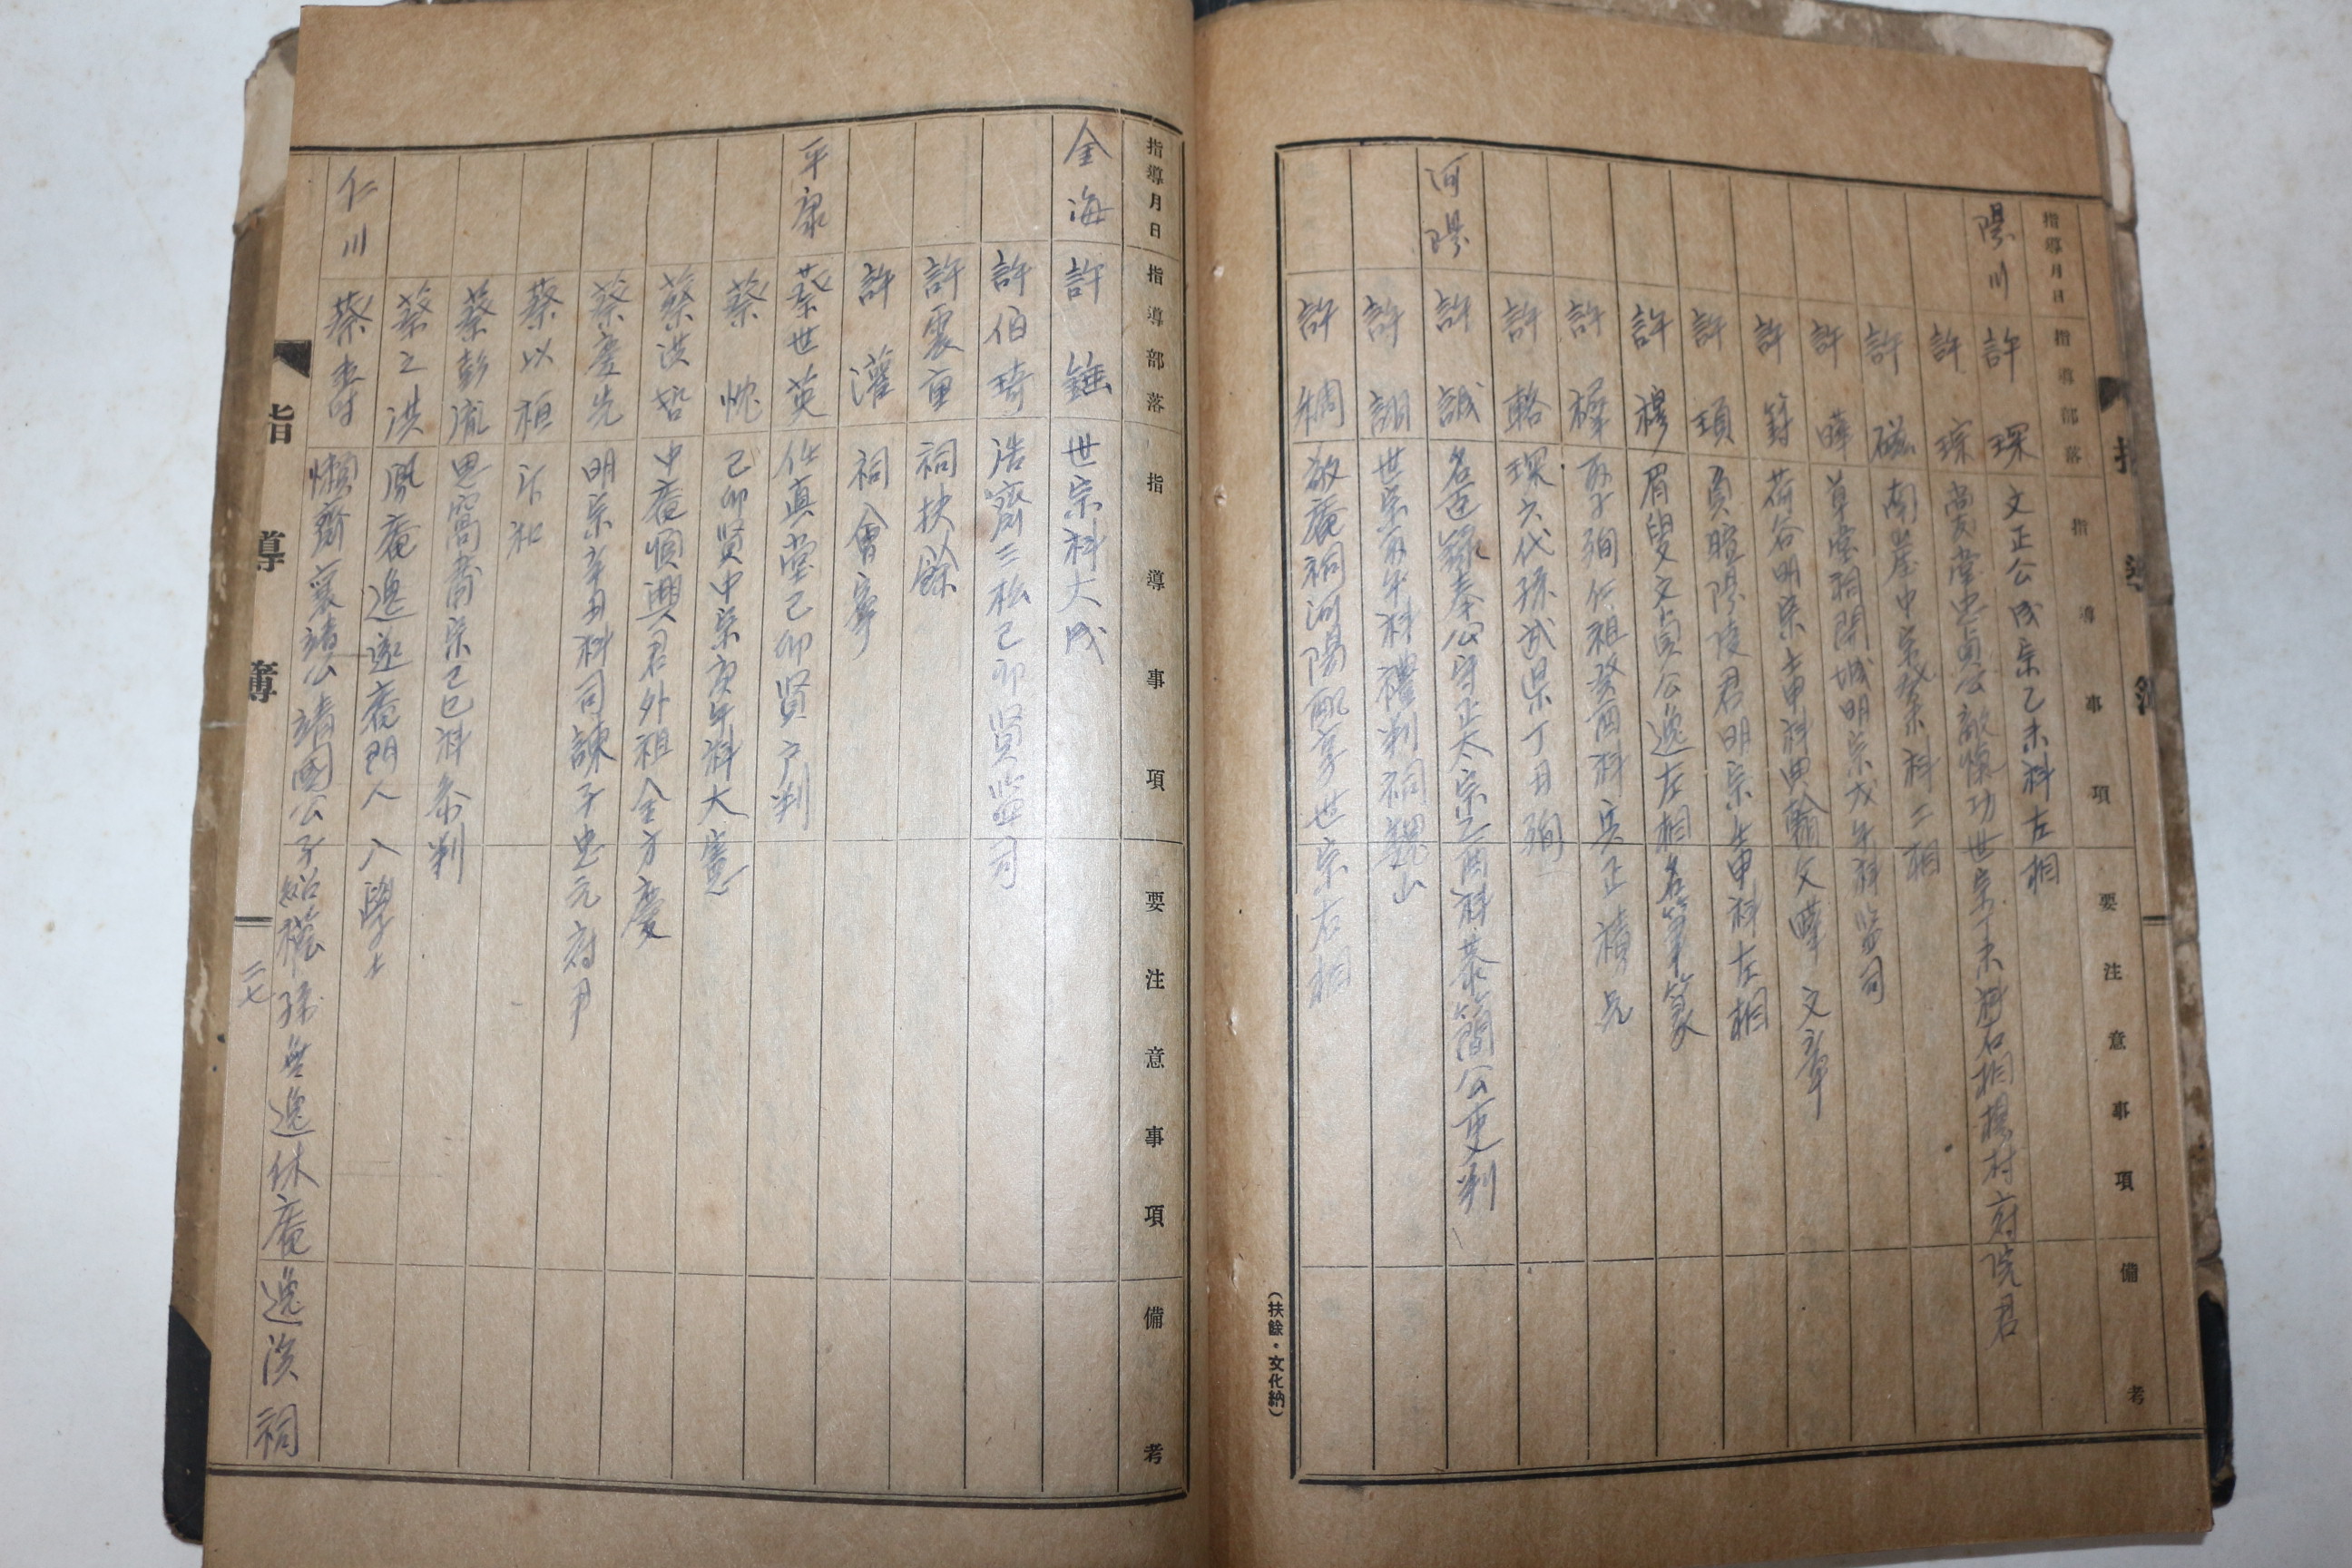 指導月日 指導部落 指導事項 要注意事項 備考
陽川 許琛 文正公成宗乙未科右相
許琮 尚友堂忠貞公敵愾功世宗丁未科右相 村府院君
許磁 南崖中宗癸未科二相
許曄 草堂祠開城明宗戊午科監司
許篈 荷谷明宗壬申科典翰父曄文章
許頊 負暄陽陵君明宗壬申科左相
許穆 眉叟文貞公逸左相名筆篆
許 仁祖癸酉科 正積兄
許輅 琛六代孫 丁丑殉
河陽 許誠 名臣錄奉公守正太宗 酉科恭簡公吏判
許詡 世宗丙午科禮判祠魏山
許稠 敬庵祠河陽配享世宗右相
(扶餘・文化納)
指導月日 指導部落 指導事項 要注意事項 備考
金海 許錘 世宗科大成
許伯琦 浩齋三松己卯賢監司
許震童 祠扶餘
許灌 祠會寧
平康 蔡世英 任真堂己卯賢戶判
蔡忱 己卯賢中宗庚午科大憲
蔡洪哲 中庵順興君外祖金方慶
蔡慶先 明宗辛丑科司諫子忠元府尹
蔡以恒
蔡彭胤 恩窩肅宗己巳科參判
蔡之洪 鳳庵逸遂庵門人 入學士
仁川 蔡壽 懶齋襄靖公靖國公子紹權孫無逸休庵逸溪祠
指導簿
二七